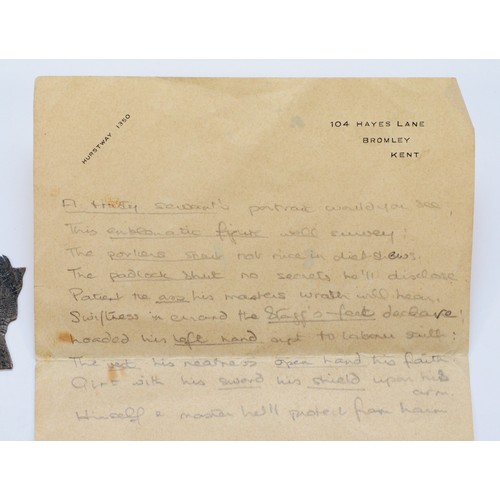 HURSTWAY 1350
104 HAYES LANE
BROMLEY
KENT
A trusty servant's portrait would you see,
This emblematic figure well survey:
The porkers snout not nice in diet shews.
The padlock shut no secrets he'll disclose
Patient the ass his masters wrath will hear,
Swiftness in errand the Stagg's-feet declare:
Loaded his left hand apt to labour saith:
The vest his neatness open hand his faith
Girt with his sword his shield upon his
arm
Himself & master he'll protect from harm